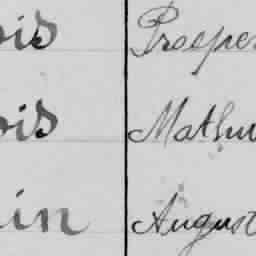 ois Prosper
ois Mathu
in August